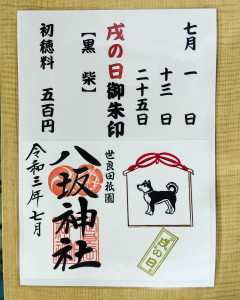 七月 一 日
十三 日
二十五日
戌の日御朱印
【黒 柴】
初穂料 五百円
世良田祇園
八坂神社
令和三年七月
戌の日